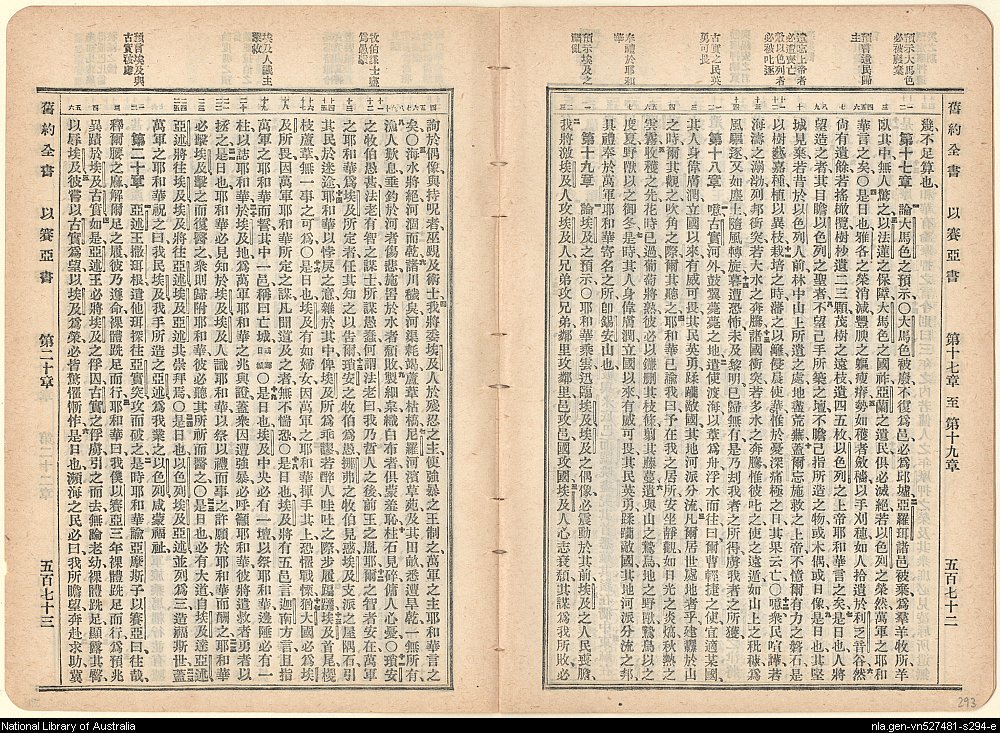 預示大馬色必被毀棄
預言遺民歸主
遺忘上帝者必遭喪亡
敵以色列者必被叱逐
古實之民英勇可畏
奉禮於耶和華
預示埃及之擾亂
舊約全書 以賽亞書 第十七章至第十九章 五百七十二
幾不足算也
第十七章 論大馬色之預示〇大馬色被毀不復爲邑必爲邱墟亞羅珥諸邑被棄爲羣羊牧所羊
臥其中無人驚之以法蓮之保障大馬色之國祚亞蘭之遺民俱必滅絕若以色列之榮然萬軍之耶和
華言之矣〇是日也雅各之榮消減豐腴之軀瘦瘠勢如穫者斂禾穡以手刈穗如人拾遺於利乏音谷然
尚有遺餘若搖橄欖樹樹杪遺二三顆茂樹之遠枝遺四五枚以色列之上帝耶和華言之矣〇是日也人將
望造之者其目瞻以色列之聖者不望己手所築之壇不瞻己指所造之物或木偶或日像是日也其堅
城見棄若昔於以色列人前林中山上所遺之處地盡荒蕪蓋爾忘施救之上帝不憶爾有力之磐石是
以樹藝嘉種植以異枝栽培之時籓之以籬侵晨使華惟於憂深痛極之日其果云亡〇噫衆民喧譁若
海濤之澎渤列邦衝突若大水之奔騰諸國衝突若多水之奔騰惟彼叱之使之遠遁如山上之秕穅爲
風驅逐又如塵土隨風轉旋暮遭恐怖未及黎明已歸無有是乃刦我者之所得虜我者之所獲
第十八章 噫古實河外鼓翼毫毫之地遣使渡海以葦爲舟浮水而往曰爾曹輕捷之使宜適某國
其人身偉膚潤立國以來有威可畏其民英勇蹂躪敵國其地河派分流凡爾居世處地者乎建纛於山
之時爾其觀之吹角之際爾其聽之耶和華已諭我曰予在我之居所安坐靜觀如日光之炎熇秋熱之
雲霧收穫之先花時已過葡萄將熟彼必以鐮刪其枝條翦其藤蔓遺與山之鷙鳥地之野獸鷙鳥以之
度夏野獸以之御冬是時其人身偉膚潤立國以來有威可畏其民英勇蹂躪敵國其地河派分流之邦
具禮奉於萬軍耶和華寄名之所即錫安山也
第十九章 論埃及之預示〇耶和華乘雲迅臨埃及埃及之偶像必震動於其前埃及之人民喪膽
我將激埃及人攻埃及人兄弟攻兄弟鄰里攻鄰里邑攻邑國攻國埃及人心志衰頹其謀爲我所敗必
牧伯謀士愈爲愚魯
埃及人識主蒙救
預言埃及與古實被虜
詢於偶像與持呪者巫覡及術士我將委埃及人於殘忍之主使強暴之王制之萬軍之主耶和華言之
矣〇海水將絕河涸而乾諸川穢矣河渠耗竭蘆葦枯槁尼羅河濱草苑及其田畝悉遭旱乾一無所有
漁人歎息垂釣於河者傷悲施罟於水者頹敗製細綿織白布者俱蒙羞恥柱石見碎傭人心憂〇瑣安
之牧伯愚甚法老有智之謀士所謀愚蠢何謂法老曰我乃哲人之後前王之胤耶爾之智者安在萬軍
之耶和華爲埃及所定者任其知之以告爾瑣安之牧伯爲愚挪弗之牧伯見惑埃及支派之屋隅石引
其民於迷途耶和華以悖戾之意雜於其中俾埃及所爲乖謬若醉人哇吐之際步履蹣跚埃及首尾椶
枝蘆葦無一事之可爲〇是日也埃及有如婦女因萬軍之耶和華揮手其上恐懼戰慄猶大國必爲埃
及所畏因萬軍耶和華所定之謀凡聞道及之者無不惴恐〇是日也埃及將有五邑言迦南方言且指
萬軍之耶和華而誓其中一邑稱曰亡城〇是日也埃及中央必有一壇以祭耶和華邊陲必有一
柱以誌耶和華於埃及地爲萬軍耶和華之兆與證蓋衆因遭強暴必呼籲耶和華彼將遣救者勇者以
拯之是日也耶和華必爲埃及人所識埃及人識耶和華以祭以禮而事之許願於耶和華而酬之耶和華
必擊埃及擊之而復醫之衆則歸附耶和華彼必聽其所祈而醫之〇是日也必有大道自埃及達亞述
亞述將往埃及埃及將往亞述其崇拜焉〇是日也以色列埃及亞述並列爲三造福斯世蓋
萬軍之耶和華祝之曰我民埃及我手所造之亞述爲我業之以色列咸蒙福祉
第二十章 亞述王撒珥根遣他珥探往亞實突攻而破之是時耶和華諭亞摩斯子以賽亞曰往哉
釋爾腰之麻解爾足之履彼乃遵命裸體跣足而行耶和華曰我僕以賽亞三年裸體跣足而行爲預兆
異蹟於埃及古實如是亞述王必將埃及之俘囚古實之俘虜引之而去無論老幼裸體跣足顯露其臀
以辱埃及彼嘗以古實爲望以埃及爲榮必皆驚懼慚怍是日也瀕海之民必曰我所瞻望奔赴求助冀
舊約全書 以賽亞書 第二十章 五百七十三
293
National Library of Australia
nla.gen-vn527481-s294-e